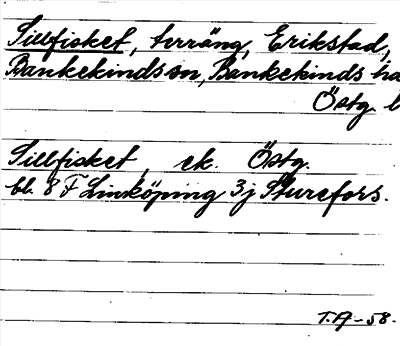 Sillfisket, terräng, Erikstad,
Bankekinds sn, Bankekinds ha
Östg. l
Sillfisket, ek. Östg.
bl. 8 F Linköping 3j Sturefors.
T.A-58.